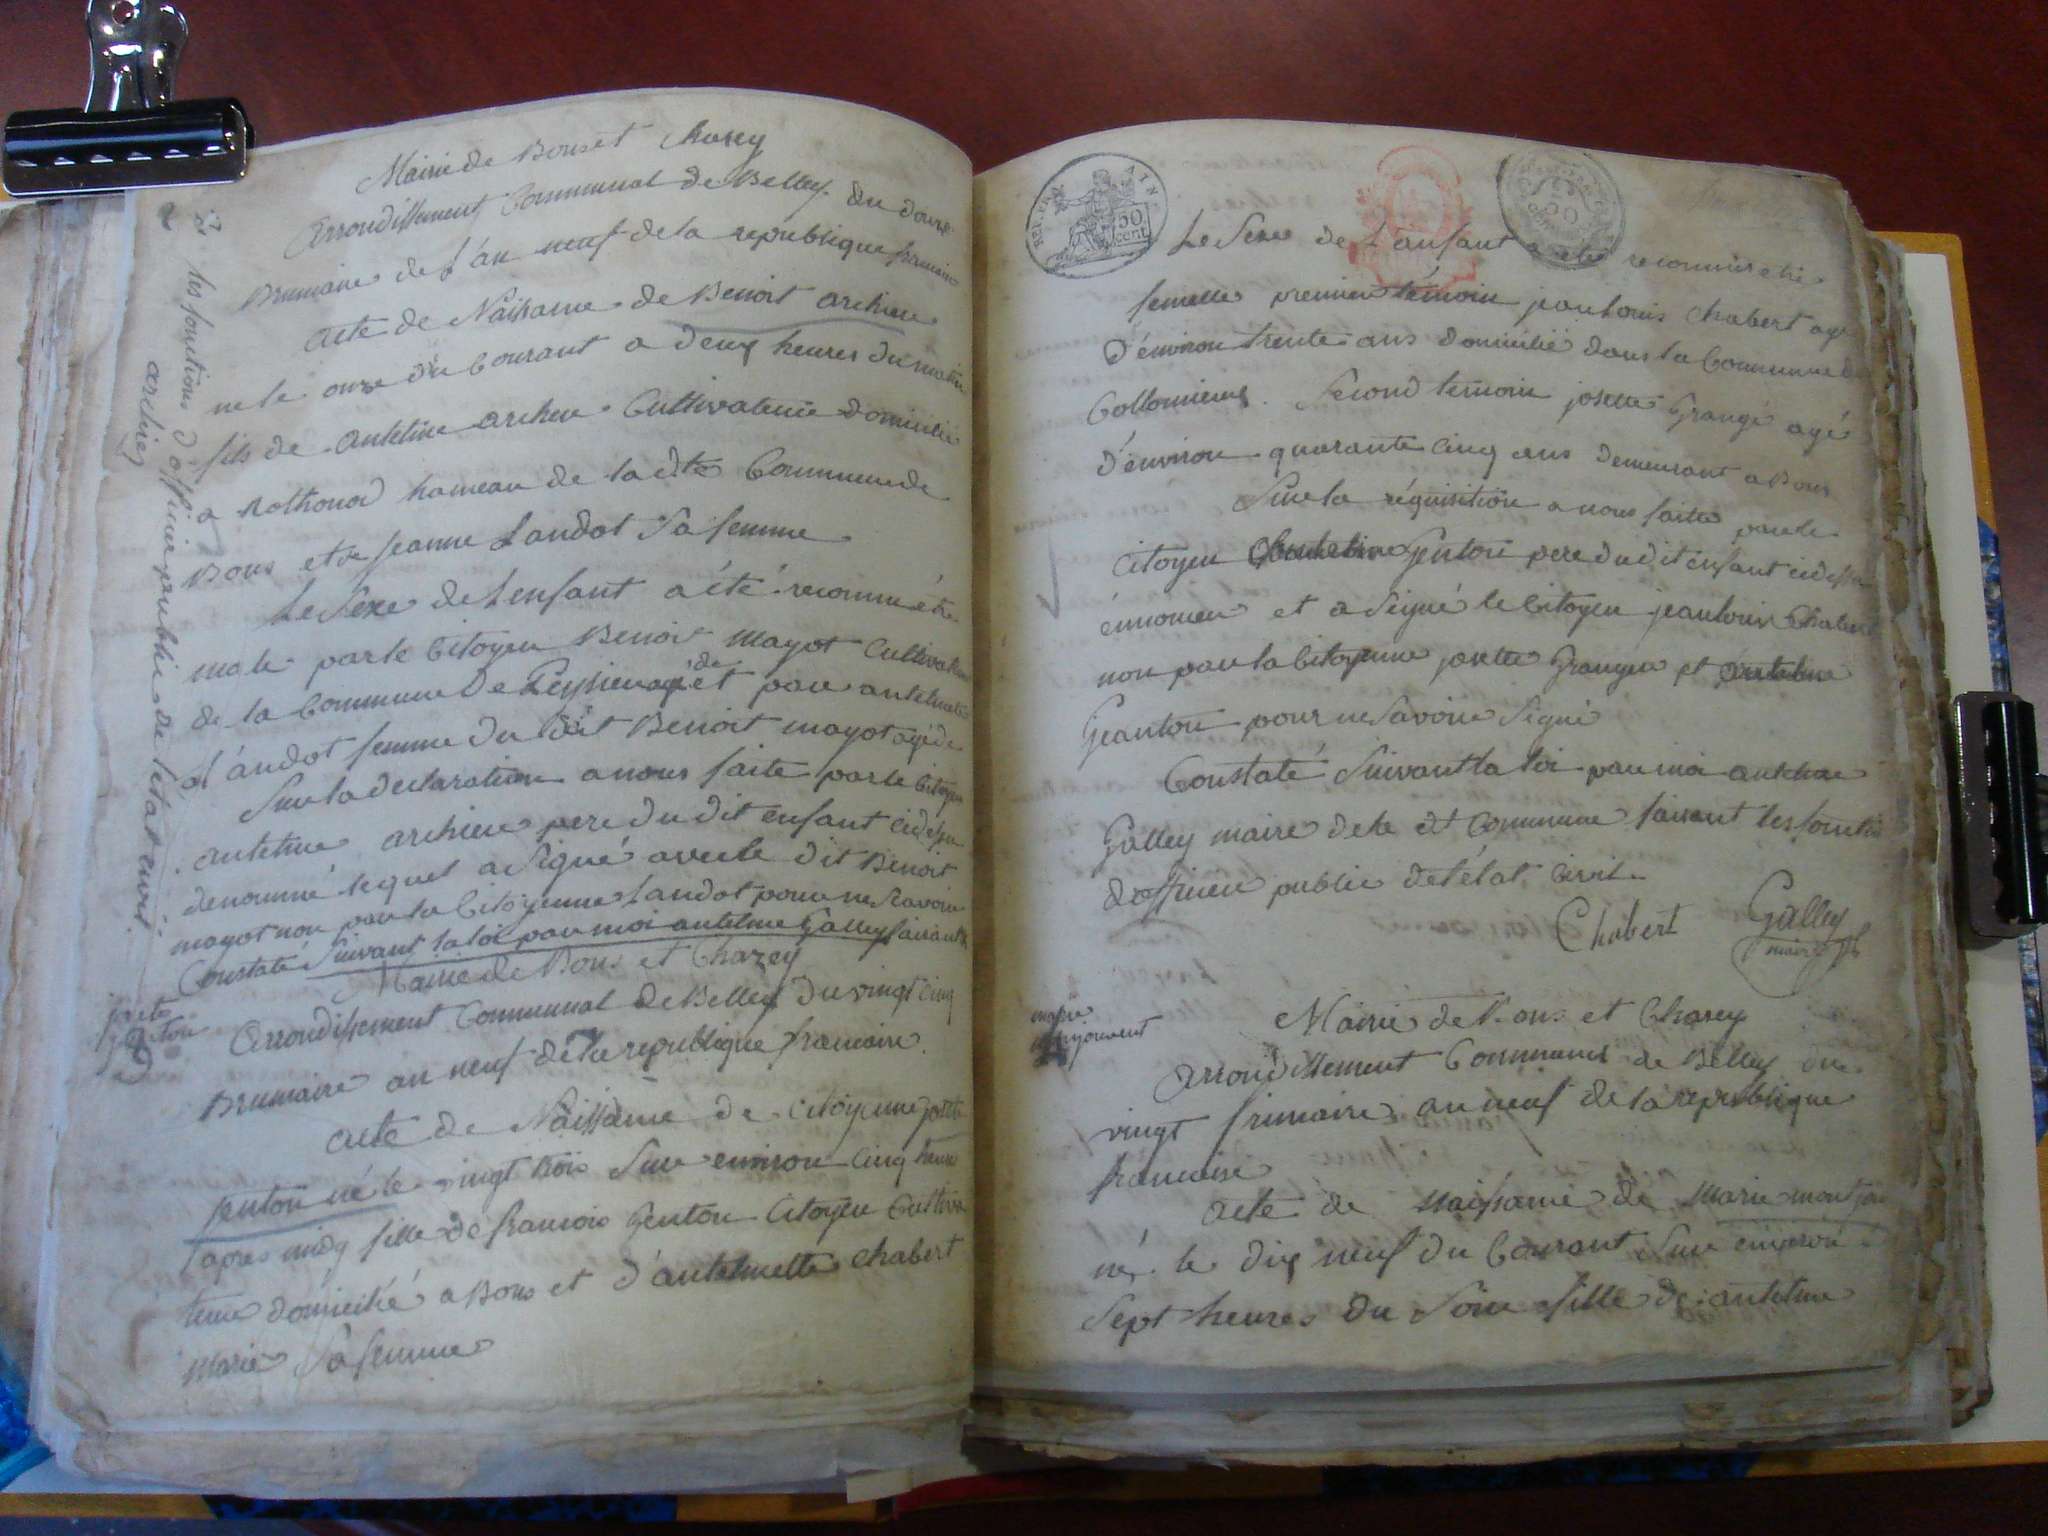 Mairie de Bons et Charey
arrondissement Communal de Belley du douze
Brumaire de l'an neuf de la republique francaise
acte de Naissance de Benoit archier
ne le onze du Courant a deux heures du matin
fils de antelme archer Cultivateur domicilié
a Rothonod hameau de la dte Commune de
Bons et de jeanne Landot Sa femme
Le Sexe de L'enfant a été reconnu étre
male par le Citoyen Benoit mayot Cultivateur
de la Commune de et par antelmette
Landot femme du dit Benoit mayot agé de
Sur la declaration a nous faite par le Citoyen
antelme archier pere du dit enfant cidessus
denommé lequel a Signé avec le dit Benoit
mayot non par la Citoyenne Landot pour ne Savoir
Constaté Suivant la loi par moi antelme Galley faisant
les fonctions d'officier public de l'etat civil.
archier
Mairie de Bons et Chazey
josete
jenton
arrondissement Communal de Belley du vingt cinq
Brumaire an neuf de la republique francaise.
acte de Naissance de Citoyenne josete
jenton né le vingt trois Sur environ cinq heure
apres midy fille de francois Genton Citoyen Cultiva
teur domicilié a Bons et d'antelmette chabert
marie Sa femme
REP. FRA. AIN.
50 cent.
Le Sexe de L'anfant a ete reconnu etre
femelle premier témoin jean louis chabert agé
D'environ trente ans domicilié dans la Commune de
Collomieux. Second temoin josette Grangé agé
d'environ quarante cinq ans demeurant a Bons
Sur la réquisition a nous faitte par le
Citoyen Genton pere du dit enfant cidessus
énnomer et a Signé le Citoyen jean louis Chabert
non par la Citoyenne josette Granger et antelme
Geanton pour ne Savoir Signé
Constaté Suivant la loi par moi antelme
Galley maire de la dt Commune faisant les fonctions
dofficier public de l'état Civil.
Chabert Galley
maire
marie
montjouvent
Mairie de Bons et Charey
arrondissement Communal de Belley du
vingt frimaire an neuf de la republique
francaise
acte de Naissance de Marie montjou
né le dix neuf du Courant Sur environ
Sept heures du Soir fille de antelme